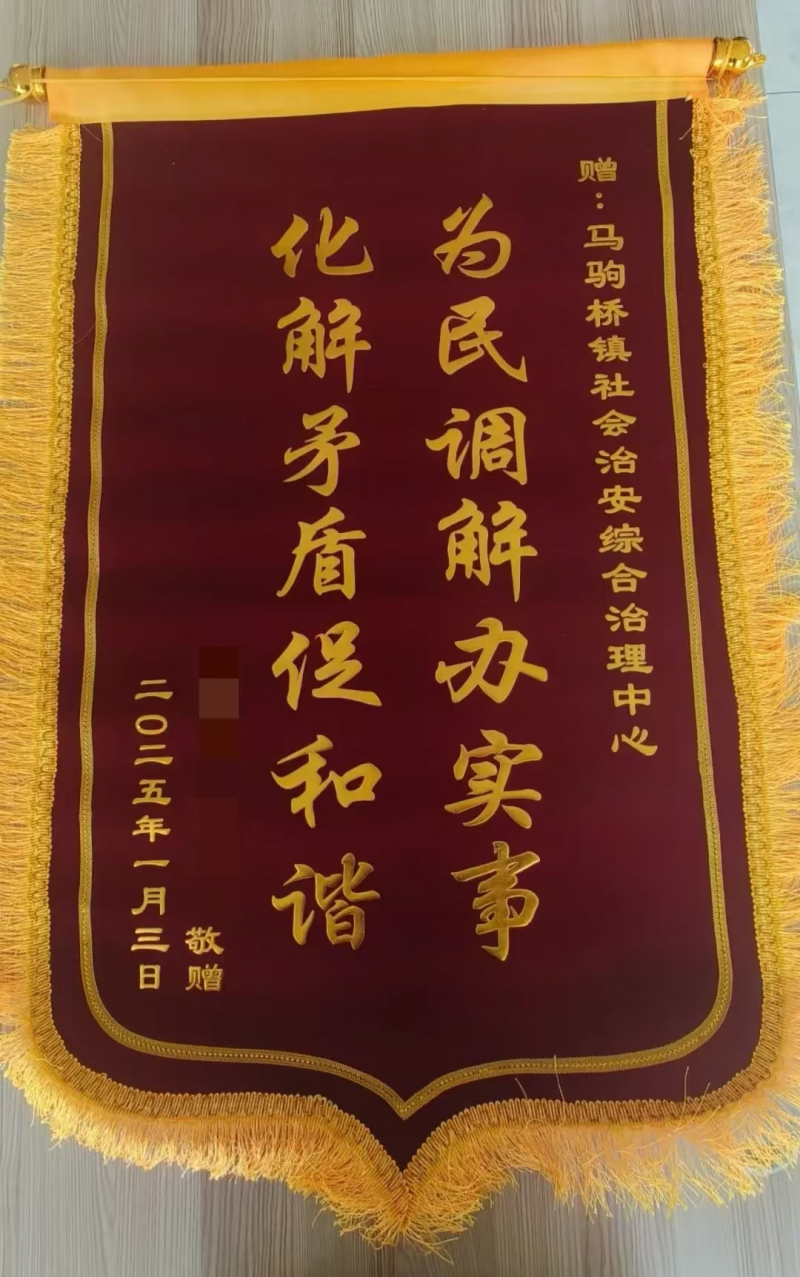 赠：马驹桥镇社会治安综合治理中心
为民调解办实事
化解矛盾促和谐
敬赠
二〇二五年一月三日